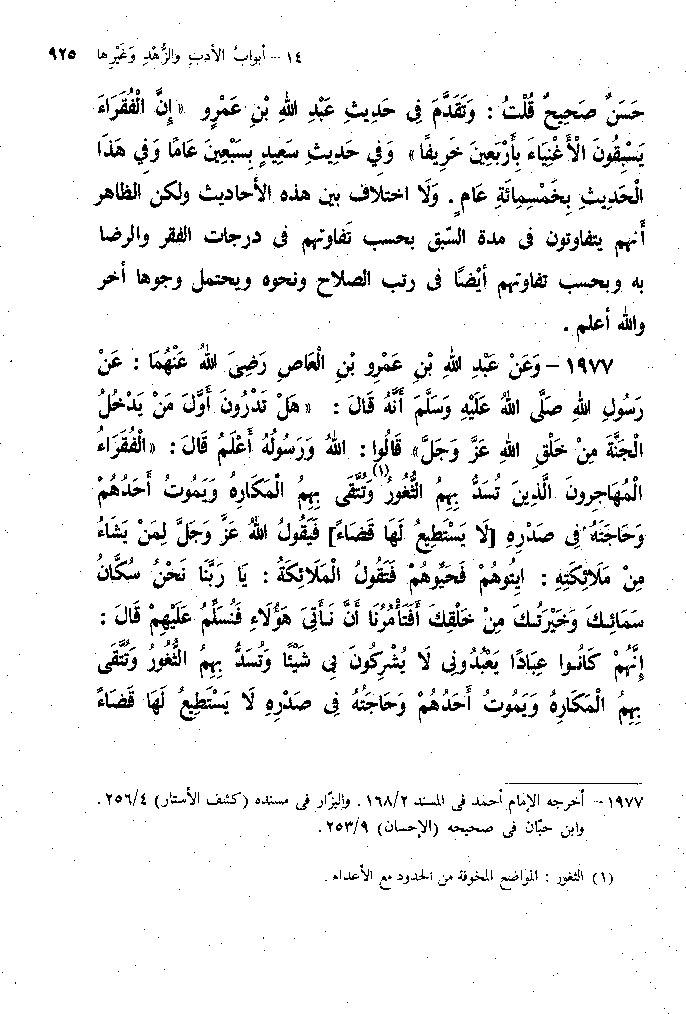 ١٤ - أبوابُ الأدبِ والزُّهْدِ وَغَيْرِها ٩٢٥
حَسَنٌ صَحِيحٌ قُلْتُ : وَتَقَدَّمَ فِى حَدِيثِ عَبْدِ اللهِ بْنِ عَمْرٍو «إِنَّ الْفُقَرَاءَ
يَسْبِقُونَ الْأَغْنِيَاءَ بِأَرْبَعِينَ خَرِيفًا» وَفِي حَدِيثِ سَعِيدٍ بِسَبْعِينَ عَامًا وَفِي هَذَا
الْحَدِيثِ بِخَمْسِمِائَةِ عَامٍ . وَلَا اختلاف بين هذه الأحاديث ولكن الظاهر
أنهم يتفاوتون فى مدة السّبق بحسب تَفاوتهم فى درجات الفقر والرضا
به وبحسب تفاوتهم أيْضًا فى رتب الصلاح ونحوه ويحتمل وجوها أخر
والله أعلم .
١٩٧٧ - وَعَنْ عَبْدِ اللهِ بْنِ عَمْرِو بْنِ الْعَاصِ رَضِىَ اللهُ عَنْهُمَا : عَنْ
رَسُولِ اللهِ صَلَّى اللهُ عَلَيْهِ وَسَلَّمَ أَنَّهُ قَالَ : «هَلْ تَدْرُونَ أَوَّلَ مَنْ يَدْخُلُ
الْجَنَّةَ مِنْ خَلْقِ اللهِ عَزَّ وَجَلَّ» قَالُوا : اللهُ وَرَسُولُهُ أَعْلَمُ قَالَ : «الْفُقَرَاءُ
الْمُهَاجِرونَ الَّذِينَ تُسَدُّ بِهِمُ الثُّغُورُ(١) وَتُتَّقَى بِهِمُ الْمَكَارِهُ وَيَمُوتُ أَحَدُهُمْ
وَحَاجَتُهُ فِى صَدْرِهِ [لَا يَسْتَطِيعُ لَهَا قَضَاءً] فَيَقُولُ اللهُ عَزَّ وَجَلَّ لِمَنْ يَشَاءُ
مِنْ مَلَائِكَتِهِ : ايتُوهُمْ فَحَيُّوهُمْ فَتَقُولُ الْمَلَائِكَةُ : يَا رَبَّنَا نَحْنُ سُكَّانُ
سَمَائِكَ وَخِيَرَتُكَ مِنْ خَلْقِكَ أَفَتَأْمُرُنَا أَنَّ نَأْتِىَ هَؤُلَاءِ فَنُسَلِّمُ عَلَيْهِمْ قَالَ :
إِنَّهُمْ كَانُوا عِبَادًا يَعْبُدُونِي لَا يُشْرِكُونَ بِى شَيْئًا وَتُسَدُّ بِهِمُ الثُّغُورُ وَتُتَّقَى
بِهِمُ الْمَكَارِهُ وَيَمُوتُ أَحَدُهُمْ وَحَاجَتُهُ فِى صَدْرِهِ لَا يَسْتَطِيعُ لَهَا قَضَاءً
١٩٧٧ - أخرجه الإمام أحمد فى المسند ١٦٨/٢ . والبزّار فى مسنده (كشف الأستار) ٢٥٦/٤ .
وابن حبّان فى صحيحه (الإحسان) ٢٥٣/٩ .
(١) الثغور : المواضع المخوفة من الحدود مع الأعداء .